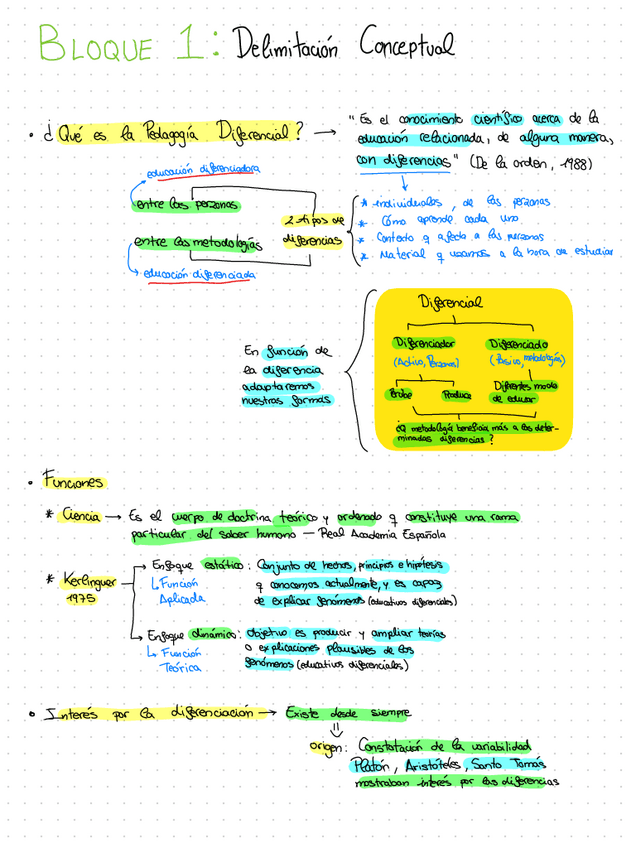 BLOQUE 1: Delimitación Conceptual
• ¿Qué es la Pedagogía Diferencial? → "Es el conocimiento científico acerca de la
educación relacionada, de alguna manera,
con diferencias" (De la orden, 1988)
educación diferenciadora
entre las personas
entre las metodologías
educación diferenciada
2 tipos de
diferencias
* individuales, de las personas
* Cómo aprende cada uno
* Contexto q afecta a las personas
* Material q usamos a la hora de estudiar
En función de
la diferencia
adaptaremos
nuestras formas
Diferencial
Diferenciador
(Activo, Personas)
Diferenciado
(Pasivo, metodologías)
Produce
Diferentes modos
de educar
¿Q metodología beneficia más a las deter-
minadas diferencias?
• Funciones
* Ciencia → Es el cuerpo de doctrina teórico y ordenado q constituye una rama
particular del saber humano — Real Academia Española
* Kerlinguer
1975
Enfoque estático: Conjunto de hechos, principios e hipótesis
q conocemos actualmente, y es capaz
de explicar fenómenos (educativos diferenciales)
Función
Aplicada
Enfoque dinámico: Objetivo es producir y ampliar teorías
o explicaciones plausibles de los
fenómenos (educativos diferenciales)
Función
Teórica
• Interés por la diferenciación → Existe desde siempre
origen: Constatación de la variabilidad
Platón, Aristóteles, Santo Tomás
mostraban interés por las diferencias